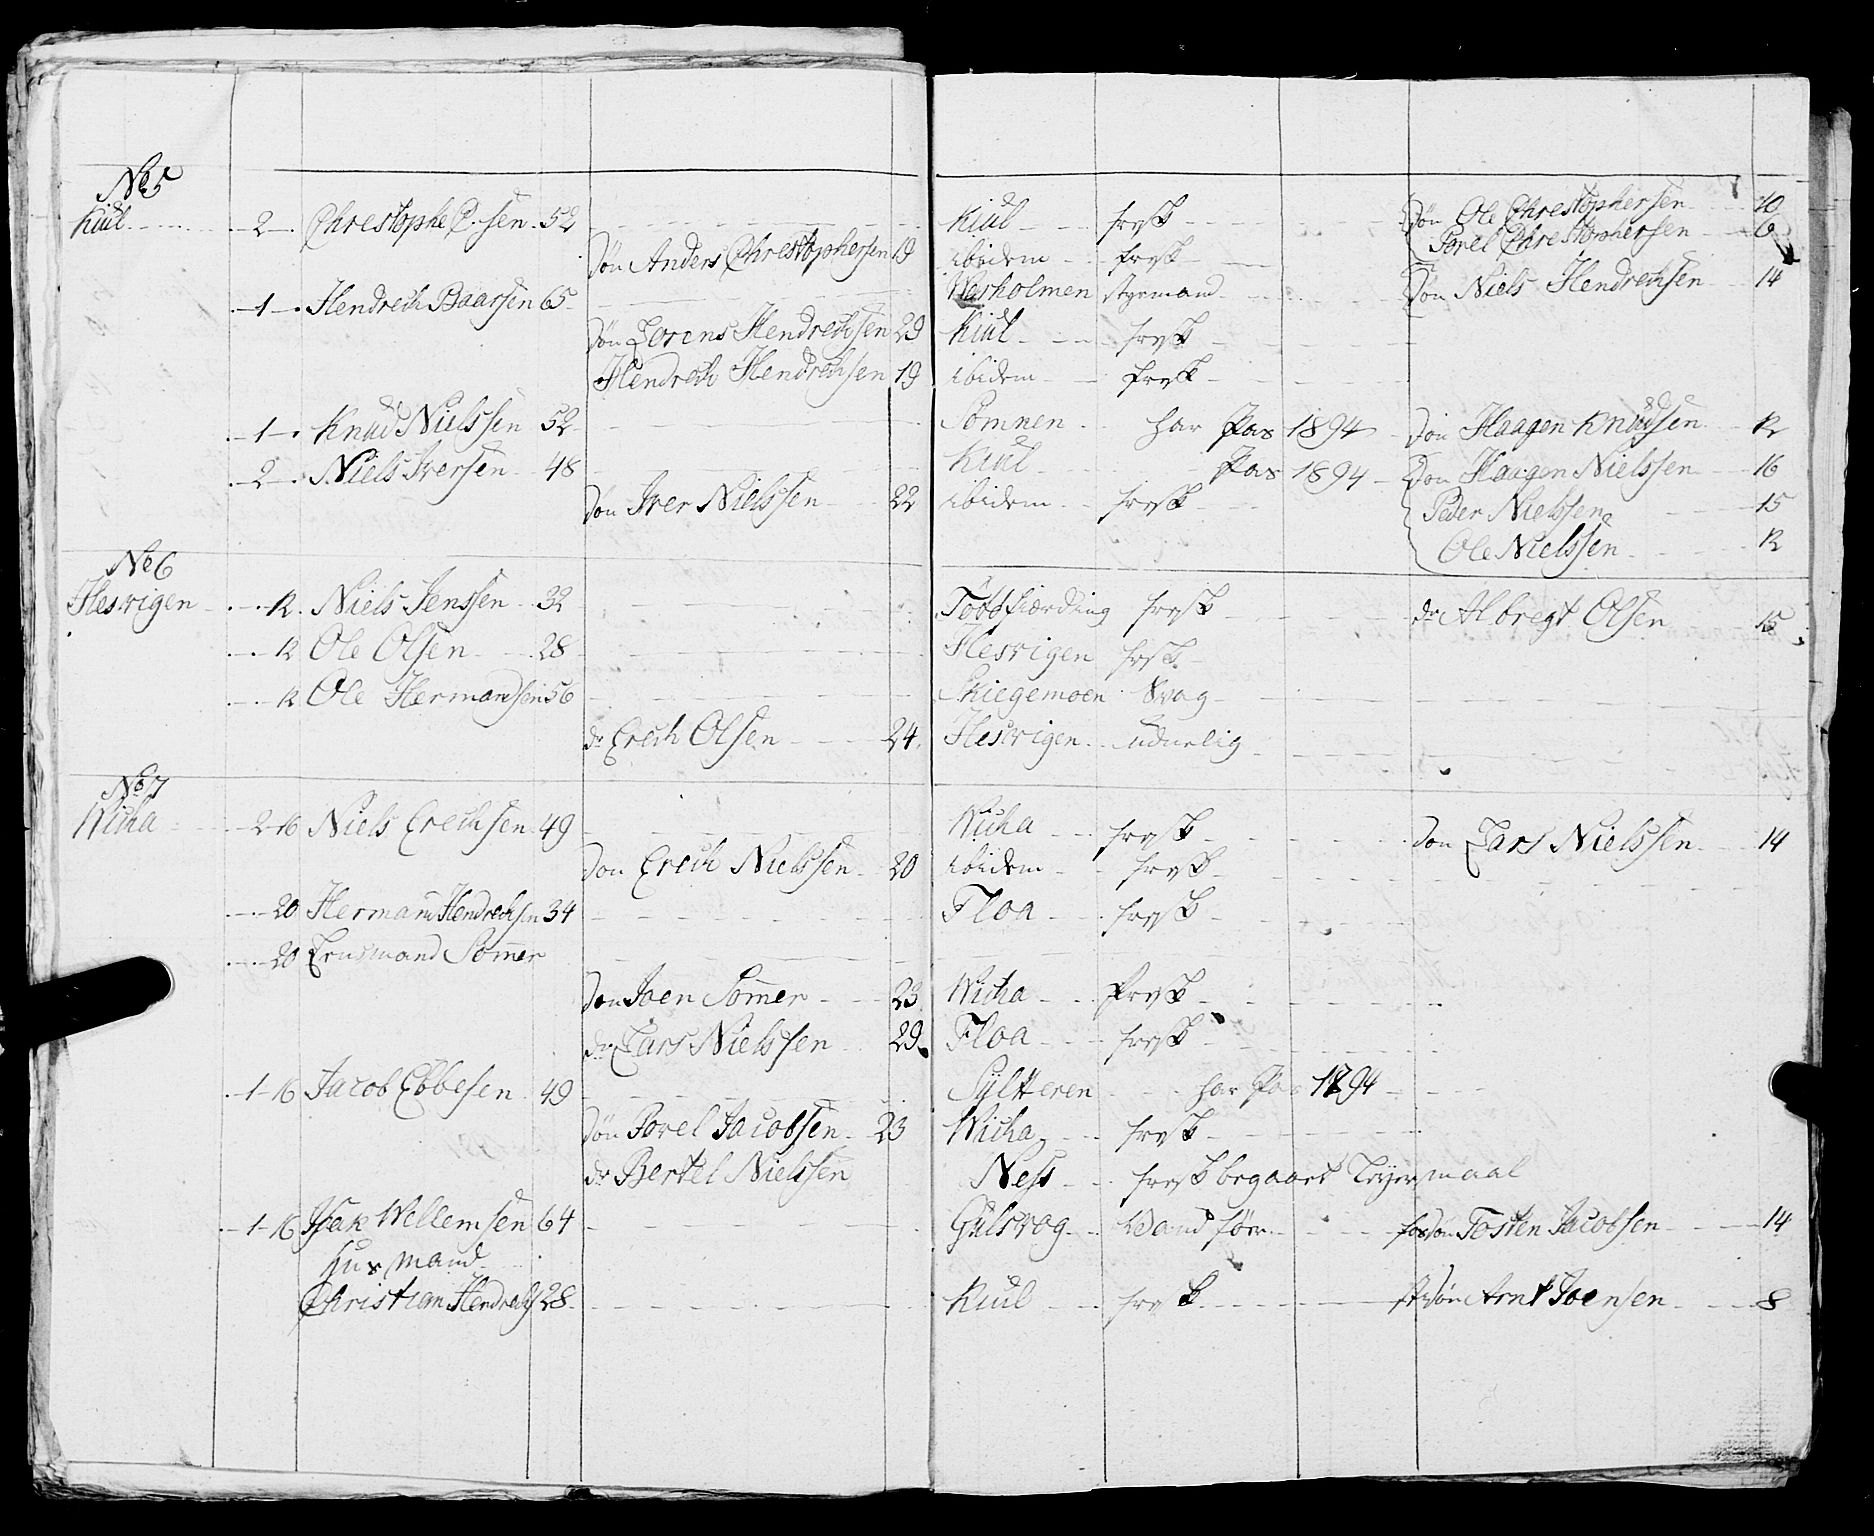 No 5
Kiul 2 Chrestophe C.sen 52 Kiul frisk Søn Ole Chrestophersen 10
Søn Anders Chrestophersen 19 ibidem frisk Povel Chrestophersen 6
1 Hendrech Baarsen 65 Warholmen styrmand Søn Niels Hendrechsen 14
Søn Lorens Hendrechsen 29 Kiul frisk
Hendrech Hendrechsen 19 ibidem frisk
1 Knud Nielssen 52 Somnen har Pas 1894 Søn Haagen Knudsen 12
2 Niels Iversen 48 Kiul Pas 1894 Søn Haagen Nielssen 16
Søn Iver Nielssen 22 ibidem frisk Peder Nielssen 15
Ole Nielssen 12
No 6
Hesvigen 12 Niels Jenssen 32 Todfiærding frisk dr Albregt Olsen 15
12 Ole Olsen 28 Hesvigen frisk
12 Ole Hermandsen 56 Skiegemoen Svag
dr Erech Olsen 24 Hesvigen uduelig
No 7
Wicha 2-16 Niels Erechsen 49 Wicha frisk Søn Lars Nielssen 14
Søn Erech Nielssen 20 ibidem frisk
20 Hermand Hendrechsen 34 Floa frisk
20 Lensmand Sommer
Søn Joen Sommer 23 Wicha frisk
dr Lars Nielssen 29 Floa frisk
1-16 Jacob Ebbesen 49 Sylteren har Pas 1794
Søn Povel Jacobsen 23 Wicha frisk
dr Bertel Nielssen Ness frisk begaaet Leyermaal
1-16 Isak Wellemsen 64 Gulsvog Wand før Tosten Jacobsen 14
Husmand
Christian Hendrechs 28 Kiul frisk Arnt Joensen 8